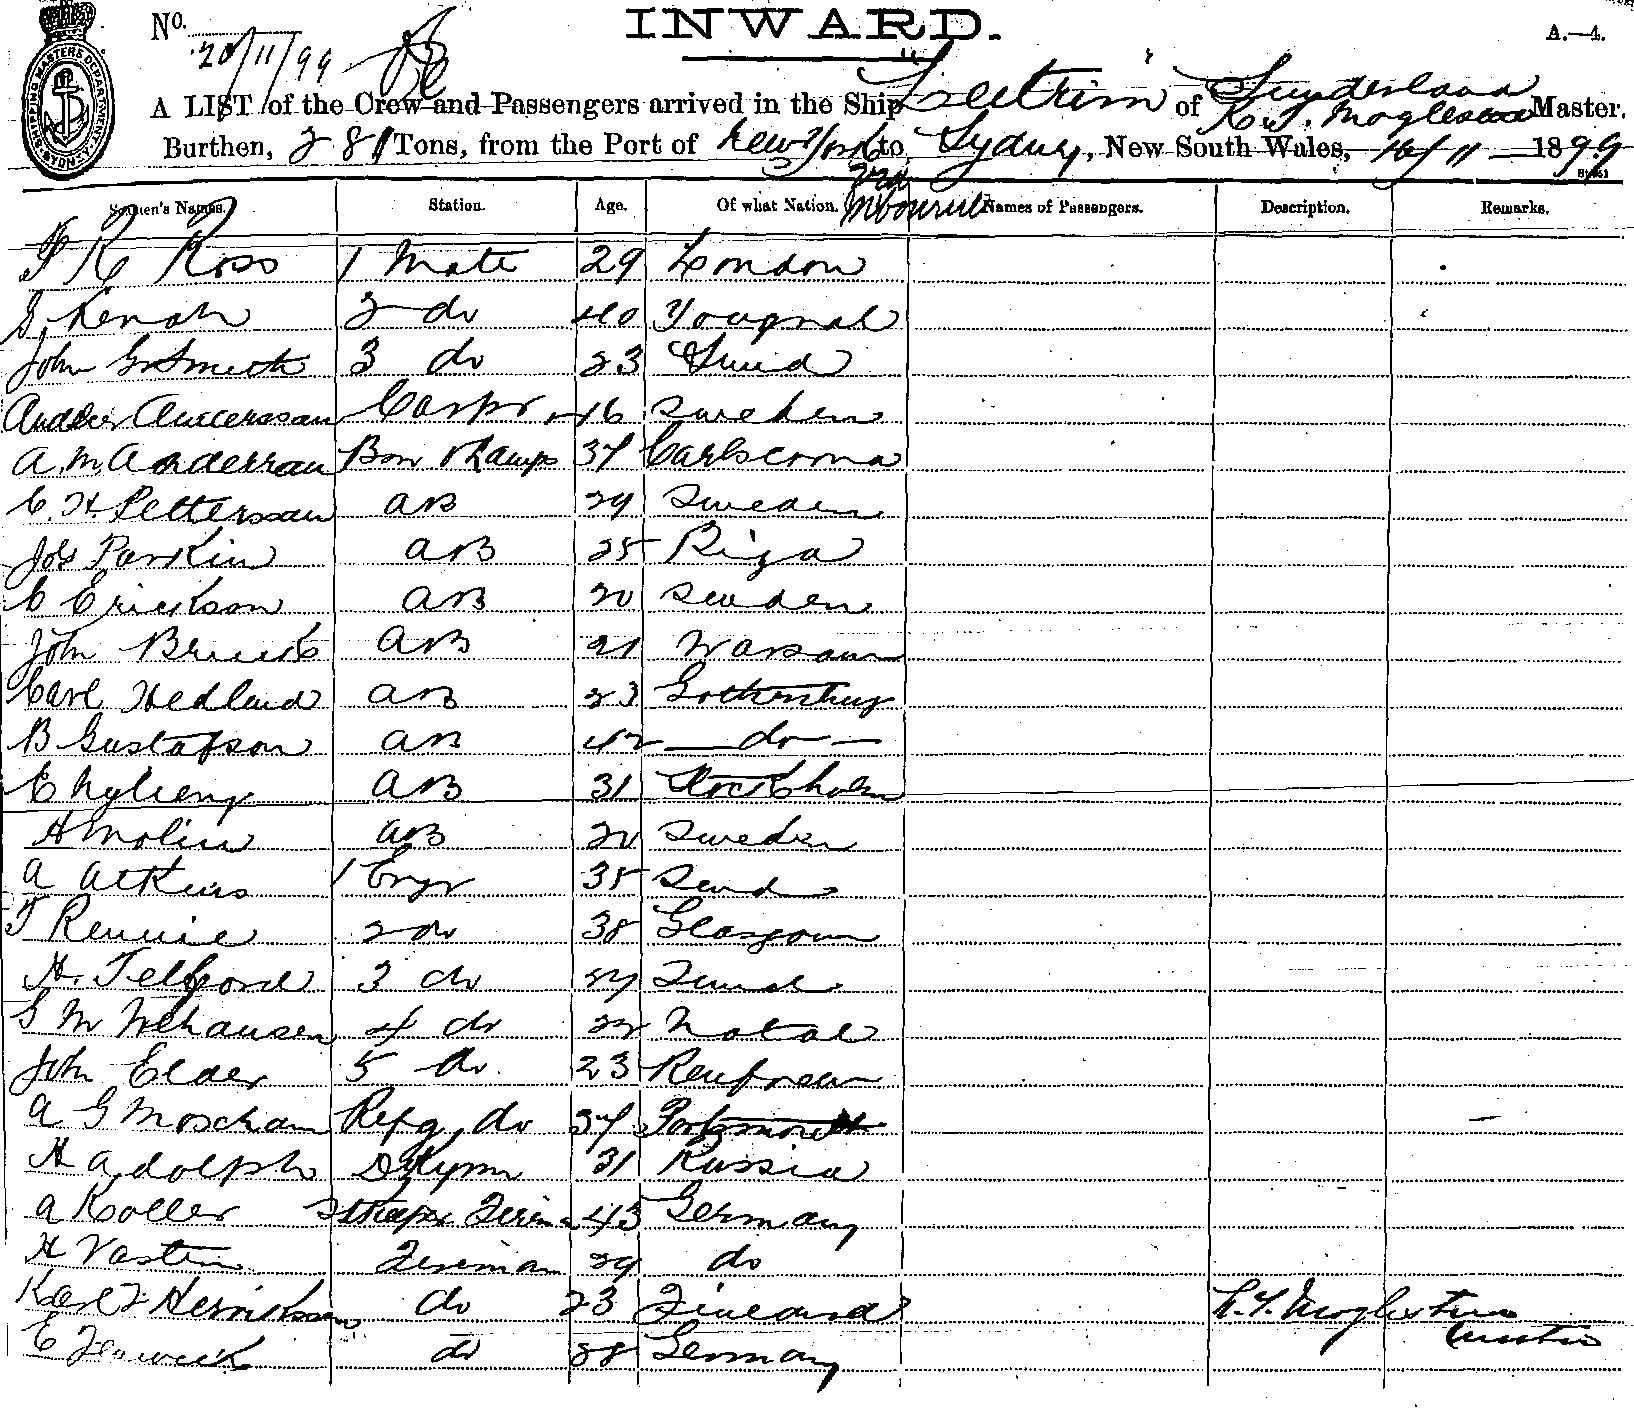 INWARD.
No. 20/11/99
A.—4.
A LIST of the Crew and Passengers arrived in the Ship "Leitrim" of Sunderland Master.
Burthen, 281 Tons, from the Port of New York to Sydney, New South Wales, 16/11 1899
via
Seamen's Names. Station. Age. Of what Nation. Names of Passengers. Description. Remarks.
Ross 1 Mate 29 London
2 do 40 Youghal
John Smith 3 do 23
Andersson Carpr 46 Sweden
A. M. Anderson Bosn & Lamps 37 Carlscrona
C. H. Pettersson AB 29 Sweden
Jos Parkin AB 25 Riga
C Erickson AB 20 Sweden
John AB 21 Warsaw
Carl Hedlund AB 23 Gothenburg
B Gustafson AB 42 — do —
E AB 31 Stockholm
A Molin AB 20 Sweden
A Atkins 1 Engr 35
T Rennie 2 do 38 Glasgow
H. Telford 3 do
G M 4 do 22 Natal
John Elder 5 do 23 Renfrew
A G Refg, do 37 Portsmouth
H Adolph 31 Russia
A Koller 43 Germany
H Fireman 29 do
Karl F Henriksson do 23 Finland
E Fenwick do 38 Germany